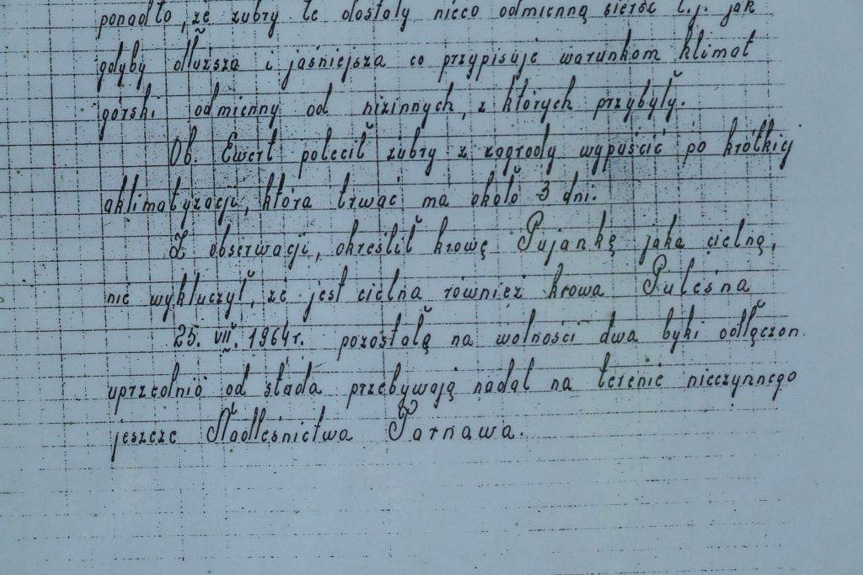 ponadto, że żubry te dostały nieco odmienną sierść t.j. jak
gdyby dłuższa i jaśniejsza co przypisuje warunkom klimat
górski odmienny od nizinnych, z których przybyły.
Ob. Ewert polecił żubry z zagrody wypuścić po krótkiej
aklimatyzacji, która trwać ma około 3 dni.
Z obserwacji, określił krowę Pujankę jako cielną,
nie wykluczył, że jest cielna również krowa Puleśna
25. VII. 1964r. pozostałę na wolności dwa byki odłączon
uprzednio od stada przebywają nadal na terenie nieczynnego
jeszcze Nadleśnictwa Tarnawa.